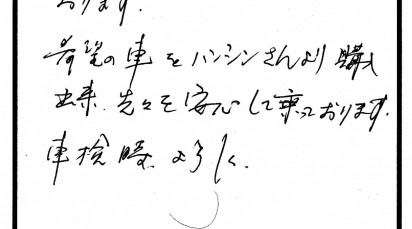 おります。
希望の車をハンシンさんより購入
出来、先々を安心して乗っております。
車検時、よろしく。